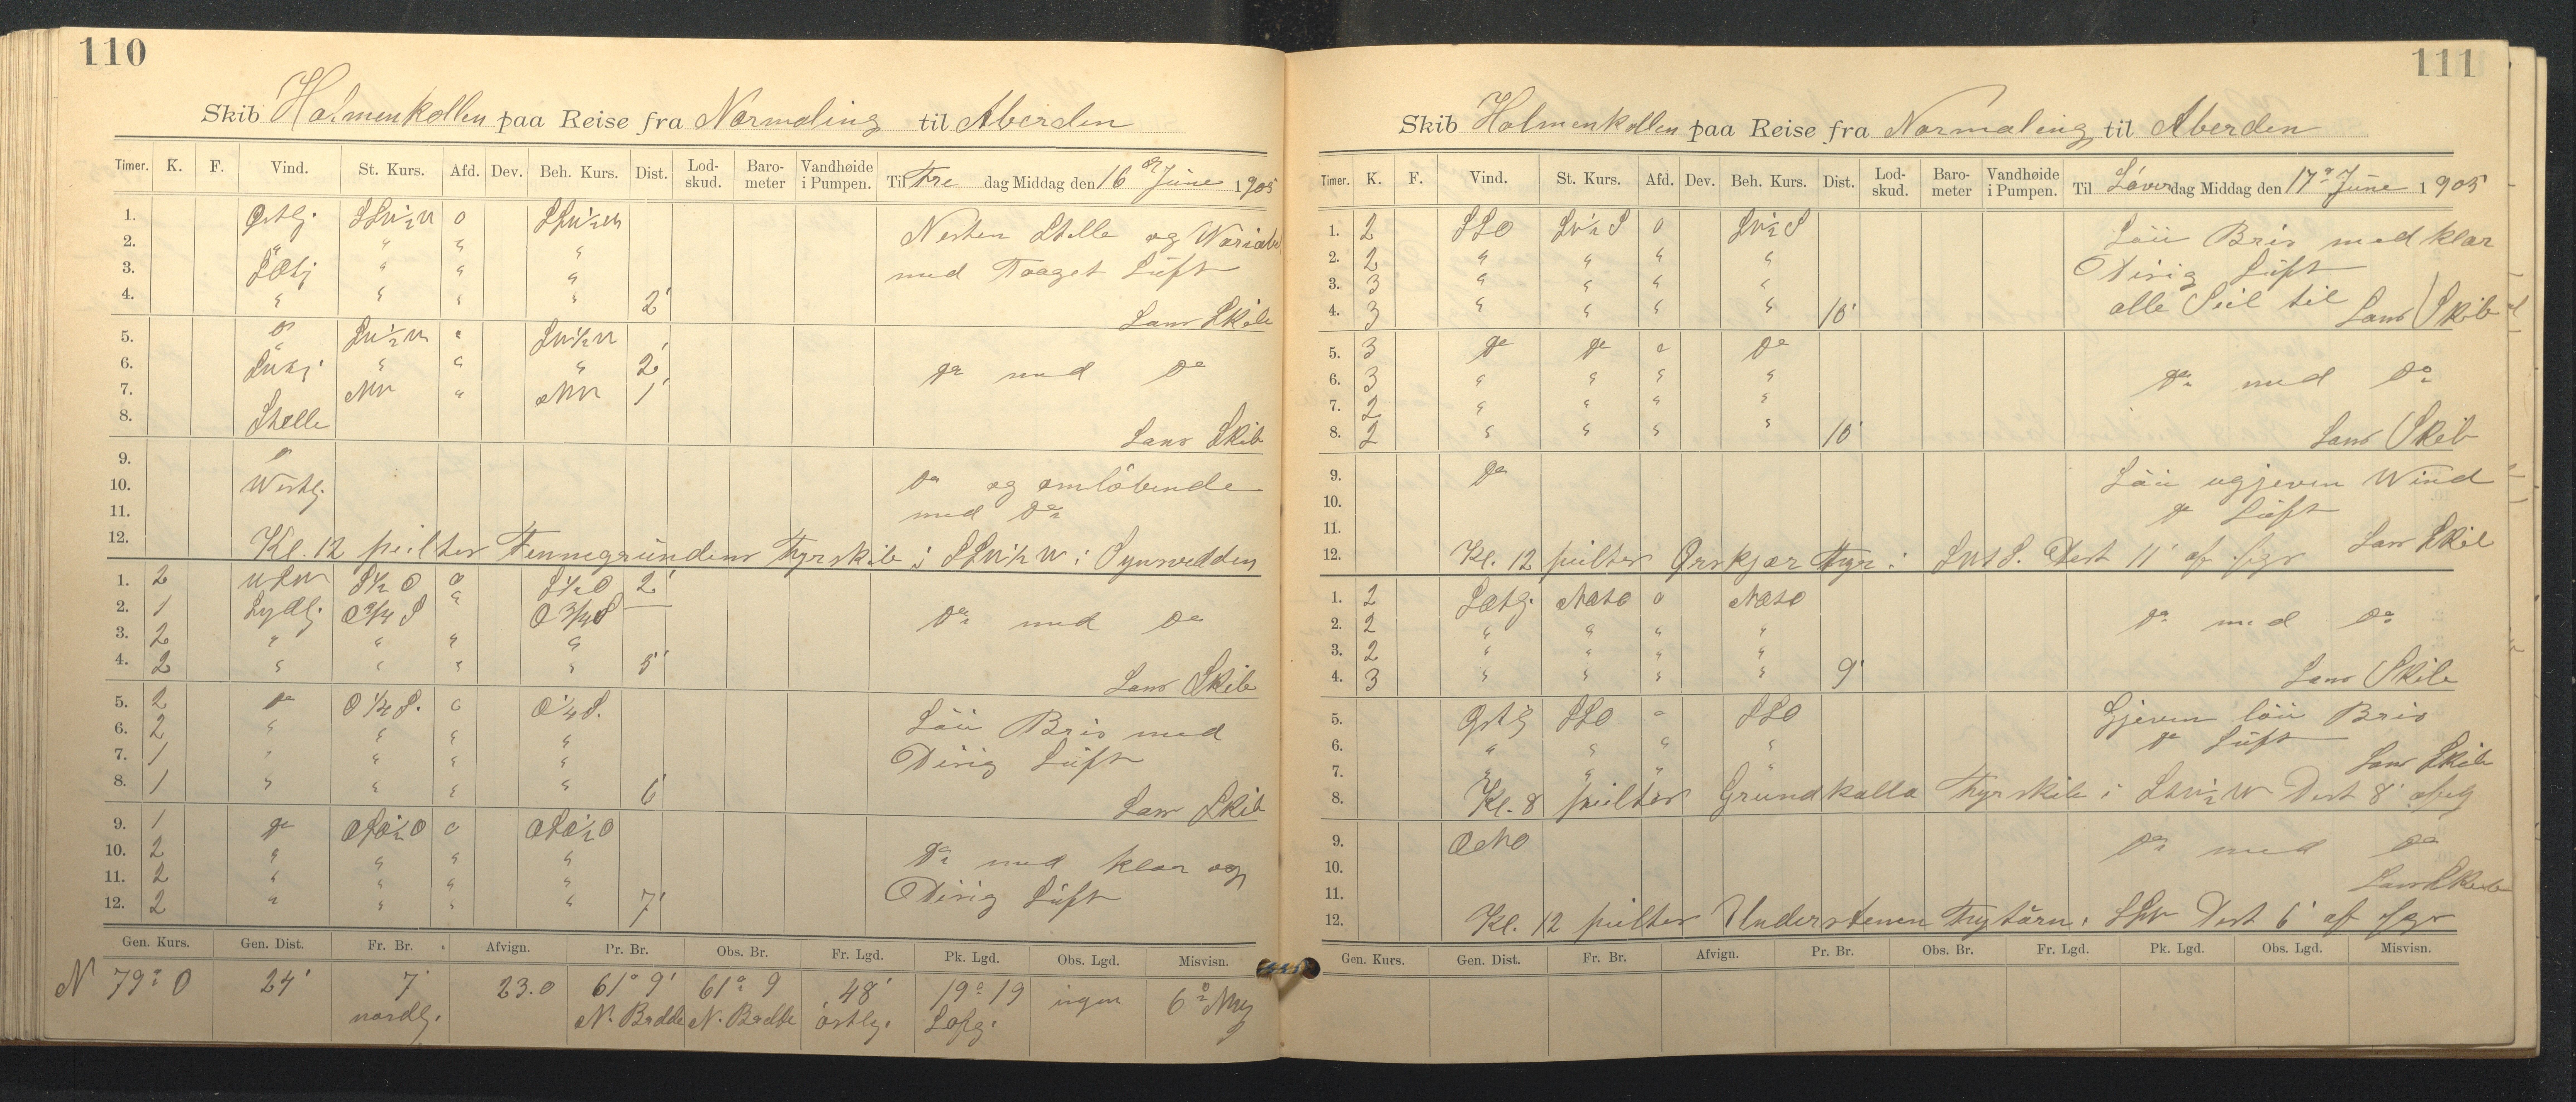 110
Skib Holmenkollen paa Reise fra Normaling til Aberden
Timer. K. F. Vind. St. Kurs. Afd. Dev. Beh. Kurs. Dist. Lod-skud. Baro-meter Vandhøide i Pumpen. Til Fre dag Middag den 16 June 1905
1. Østlg. SSW½W 0 SSW½W
Nesten Stille og Wariabl
2. " " " "
3. " " "
med Taaget Luft
4. " " " " 2'
Lans Skib
5. SW½W " SW½W
6. " " " 2'
Do med Do
7. NW " NW 1'
8. Stille
Lans Skib
9.
10. Westlg.
Do og omløbende
11.
med Do
12. Kl. 12 peiltes Finngrundens Fyrskib i SSW½W i Synsvidden
1. 2 WSW S½O 0 S½O 2'
2. 1 Sydlg. O¾S " O¾S
Do med Do
3. 2 " " " "
4. 2 " " " " 5'
Lans Skib
5. 2 Do O¼S. 0 O¼S.
Löu Bris med
6. 2 " " " "
7. 1 " " " "
Disig Luft
8. 1 " " " " 6'
Lans Skib
9. 1 Do OSO½O 0 OSO½O
10. 2 " " " "
Do med klar og
11. 2 " " " "
Disig Luft
12. 2 " " " " 7'
Gen. Kurs. Gen. Dist. Fr. Br. Afvign. Pr. Br. Obs. Br. Fr. Lgd. Pk. Lgd. Obs. Lgd. Misvisn.
N 79° O 24' 7' 23.0 61° 9' 61° 9 48' 19° 19 ingen 6°
nordlg. N. Bredde N. Bredde östlg.
111
Skib Holmenkollen paa Reise fra Normaling til Aberden
Timer. K. F. Vind. St. Kurs. Afd. Dev. Beh. Kurs. Dist. Lod-skud. Baro-meter Vandhøide i Pumpen. Til Löver dag Middag den 17 June 1905
1. 2 SSO SW½S 0 SW½S
Löu Bris med klar
2. 2 " " " "
Disig Luft
3. 3 " " " "
alle Seil til
4. 3 " " " " 10'
Lans Skib
5. 3 Do Do 0 Do
6. 3 " " " "
Do med Do
7. 2 " " " "
8. 2 " " " " 10'
Lans Skib
9. Do
Löu ugjeven Wind
10.
Do Luft
11.
Lans Skib
12. Kl. 12 peiltes Ørskjær Fyr i Dist 11' af
1. 2 0
2. 2 " " " "
Do med Do
3. 2 " " " "
4. 3 " " " " 9'
Lans Skib
5. Østlg SSO " SSO
Gjeven löu Bris
6. " " " "
Do Luft
7. " " " "
Lans Skib
8. Kl. 8 peiltes Grundkalla Fyrskib i Dist 8'
9. ONO
Do med Do
10.
11.
Lans Skib
12. Kl. 12 peiltes Understenen Fyrtårn i SSW Dist 6' af
Gen. Kurs. Gen. Dist. Fr. Br. Afvign. Pr. Br. Obs. Br. Fr. Lgd. Pk. Lgd. Obs. Lgd. Misvisn.